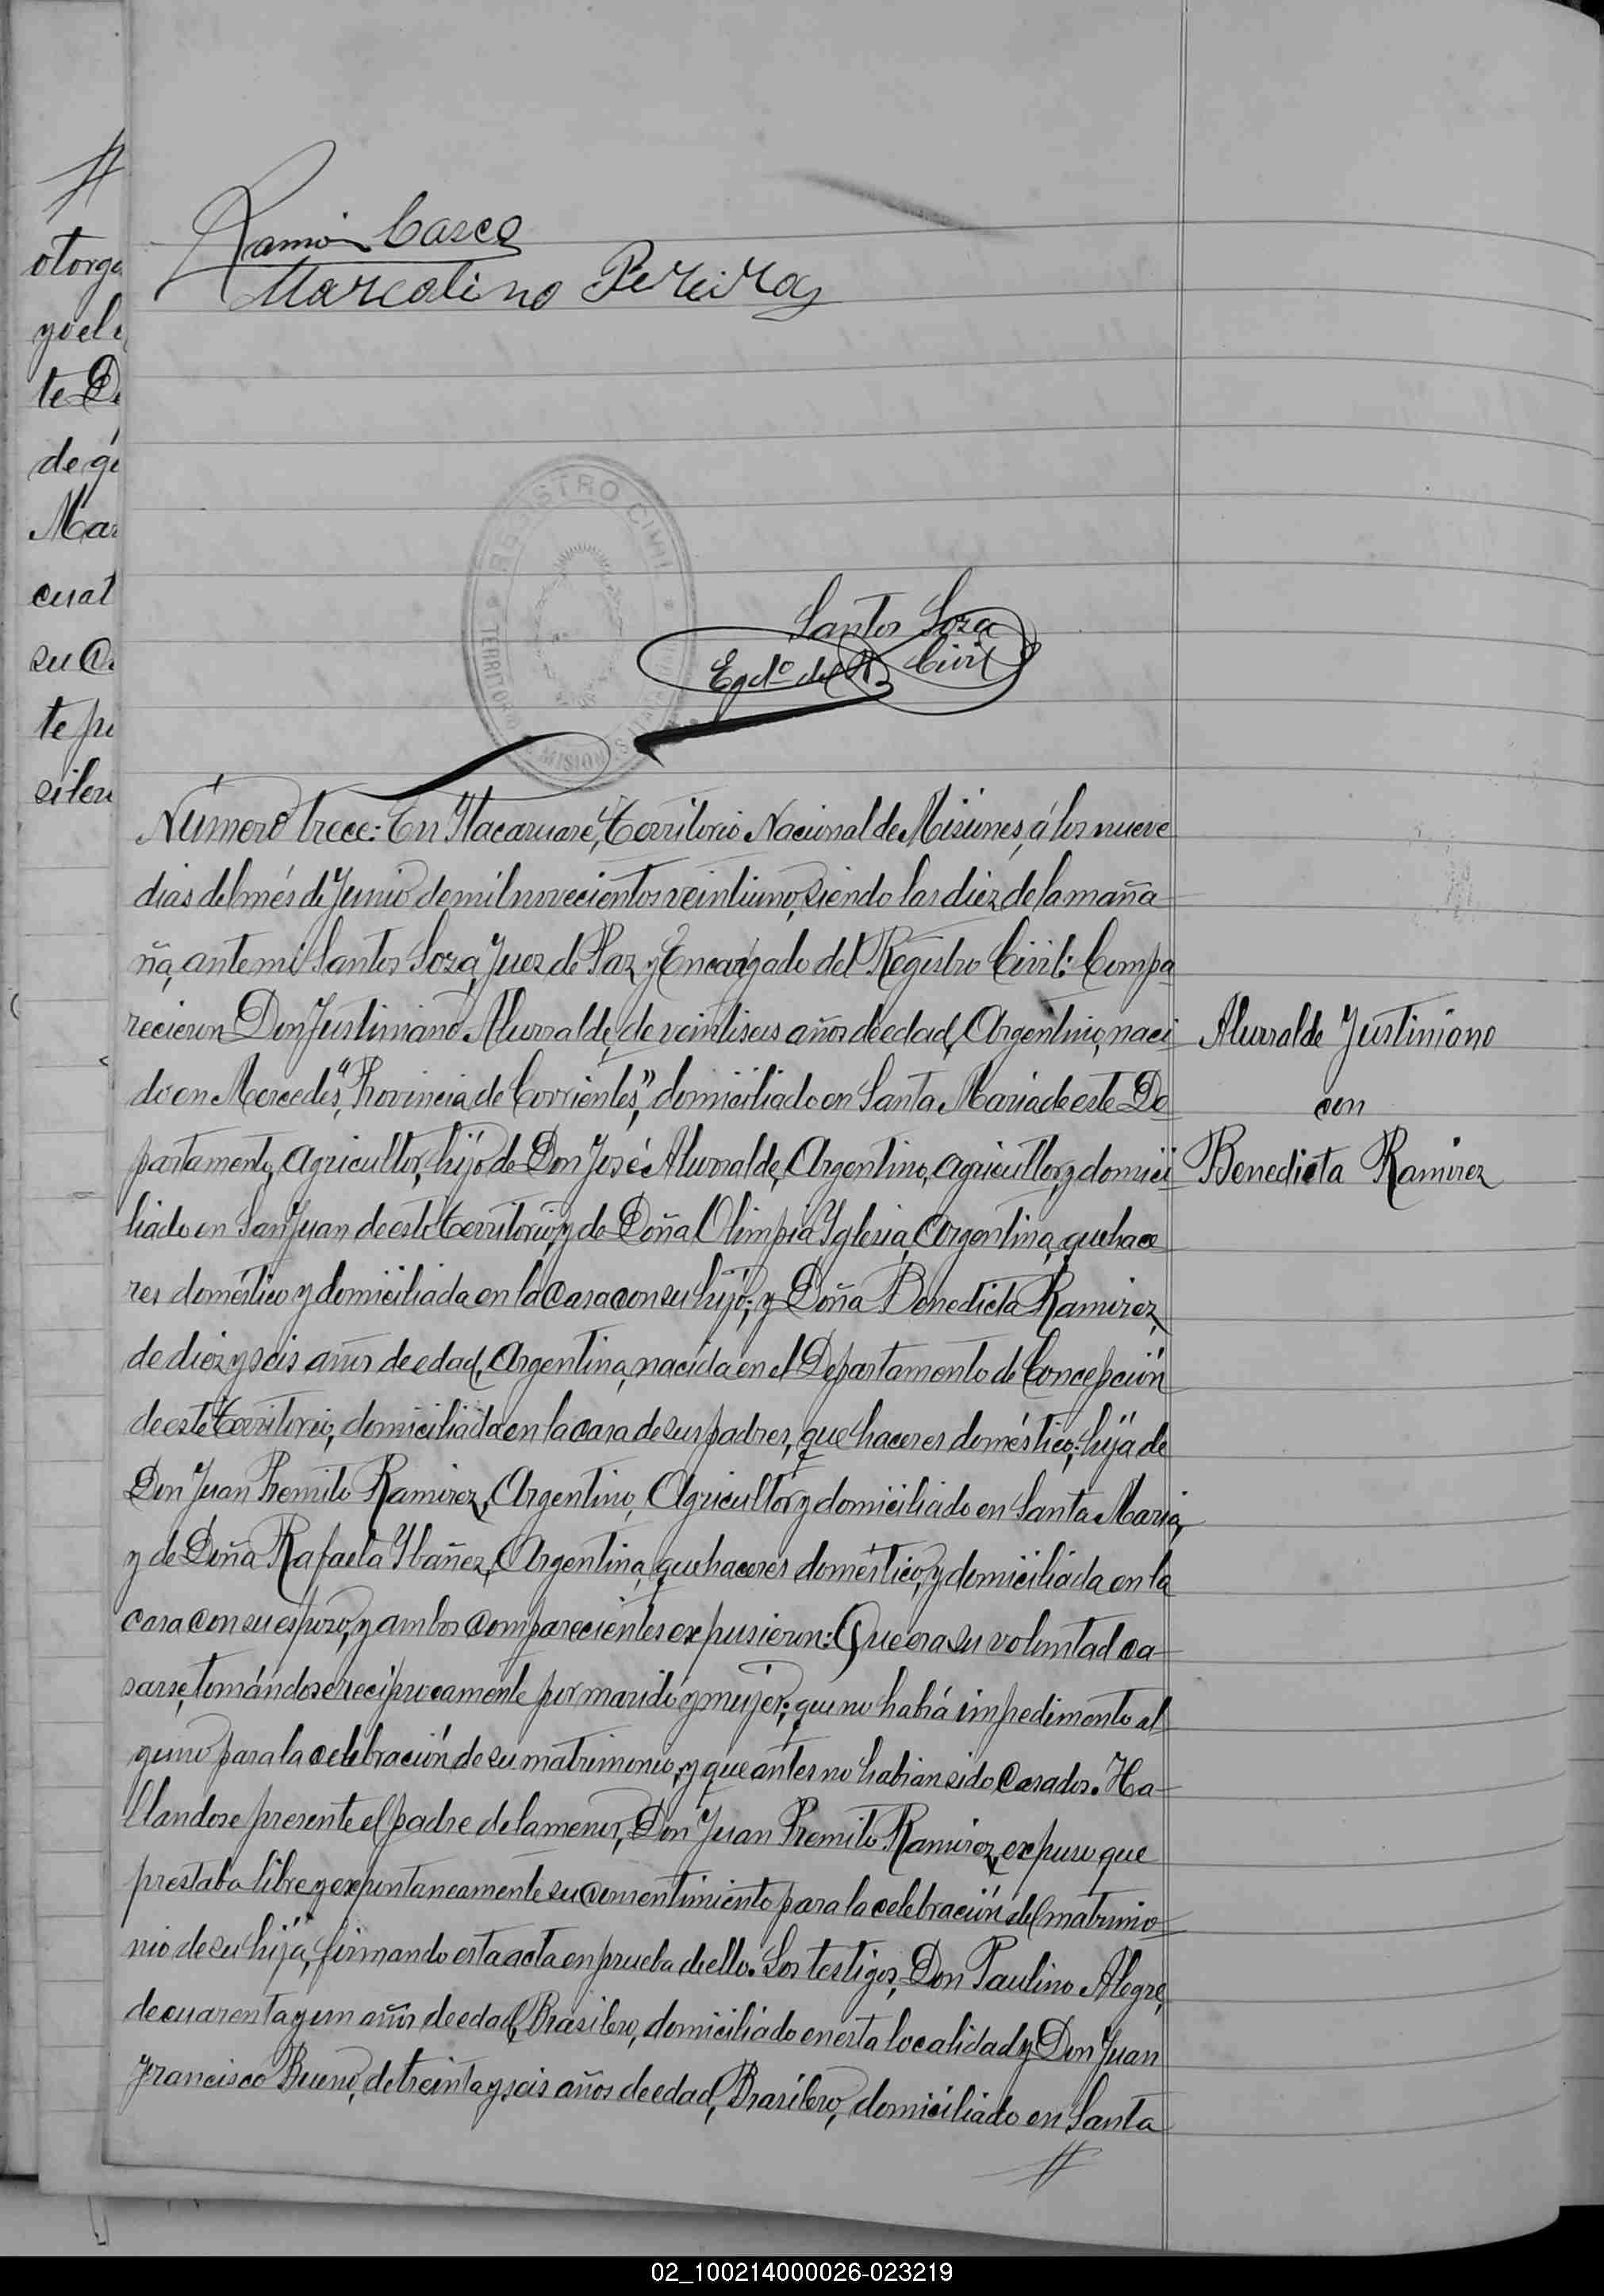 Ramón Casco
Marcolino Pereira
REGISTRO CIVIL
TERRITORIO
MISIONES
Santos Soza
Egdo. del R. Civil
Número trece: En Itacaruaré, Territorio Nacional de Misiones, á los nueve
dias del més de Junio de mil novecientos veintiuno, siendo las diez de la maña-
ña, ante mi Santos Soza, Juez de Paz y Encargado del Registro Civil: Compa
recieron Don Justiniano Alurralde, de veintiseis años de edad, Argentino, naci
do en Mercedes, "Provincia de Corrientes", domiciliado en Santa Maria de este De
partamento, agricultor, hijo de Don José Alurralde, Argentino, agricultor, y domici
liado en San Juan de este territorio, y de Doña Olimpia Yglesia, Argentina, quehace
res doméstico y domiciliada en la casa con su hijo; y Doña Benedicta Ramirez,
de diez y seis años de edad, Argentina, nacida en el Departamento de Concepción
de este Territorio, domiciliada en la casa de sus padres, que haceres doméstico; hija de
Don Juan Remito Ramirez, Argentino, Agricultor y domiciliado en Santa Maria,
y de Doña Rafaela Ybañez, Argentina, quehaceres doméstico, y domiciliada en la
casa con su esposo, y ambos comparecientes expusieron: Que era su voluntad ca-
sarse, tomándose reciprocamente por marido y mujer; que no habia impedimento al
guno para la celebración de su matrimonio, y que antes no habian sido casados. Ha-
llandose presente el padre de la menor, Don Juan Remito Ramirez, expuso que
prestaba libre y expontaneamente su consentimiento para la celebración del matrimo
nio de su hija, firmando esta acta en prueba de ello. Los testigos, Don Paulino Alegre,
de cuarenta y un años de edad, Brasilero, domiciliado en esta localidad y Don Juan
Francisco Bueno, de treinta y seis años de edad, Brasilero, domiciliado en Santa
//
Alurralde Justiniano
con
Benedicta Ramirez
//
otorga
yo el
te D
de
Mar
cuat
su
te
02_100214000026-023219